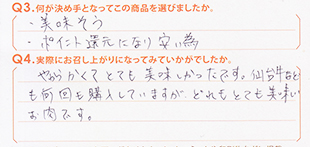 Q3.何が決め手となってこの商品を選びましたか。
・美味そう
・ポイント還元になり安い為
Q4.実際にお召し上がりになってみていかがでしたか。
やわらかくてとても美味しかったです。仙台牛など
も何回も購入していますが、どれもとても美味しい
お肉です。